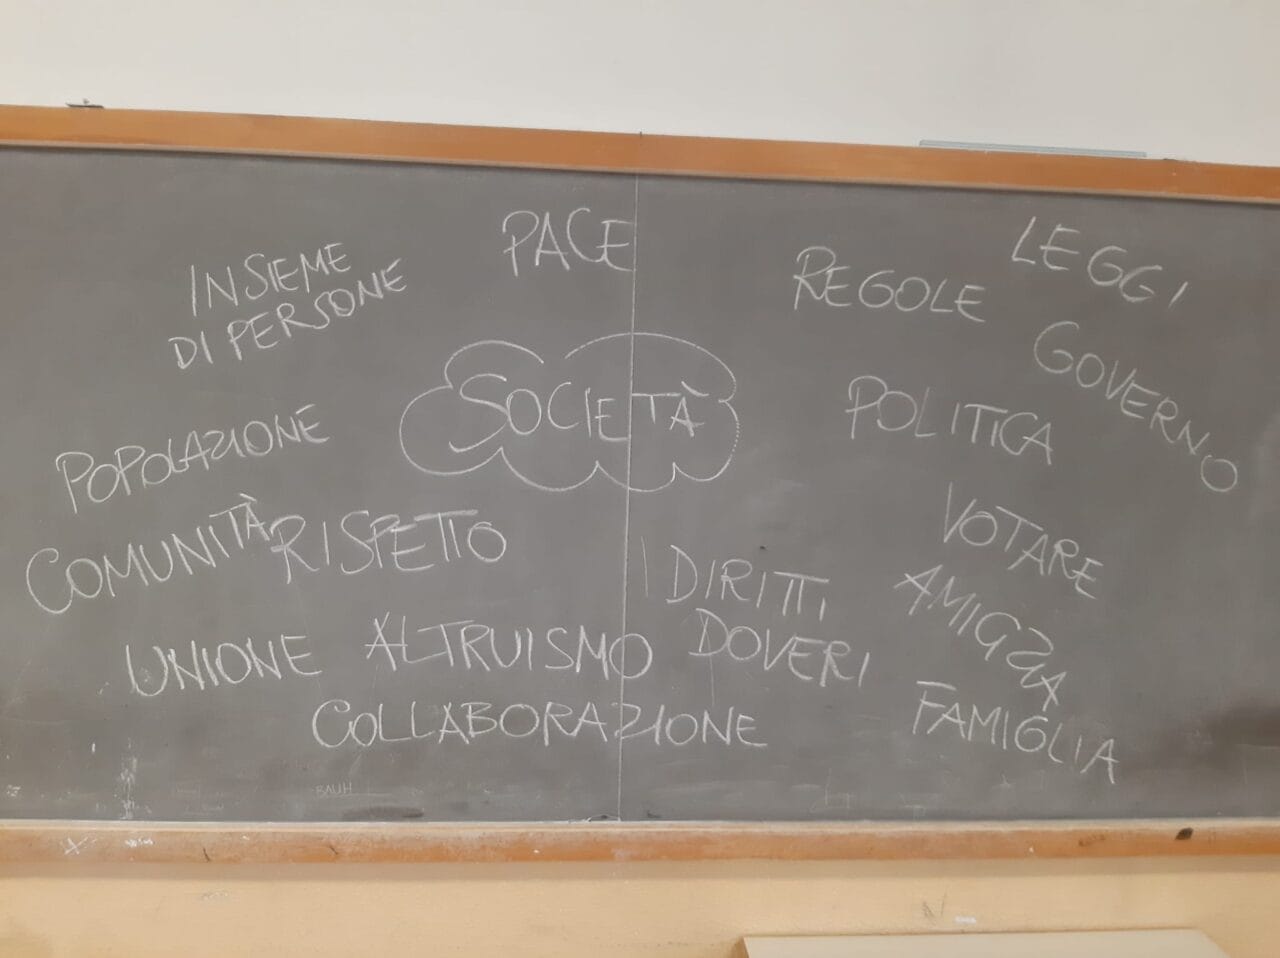 PACE
INSIEME
DI PERSONE
REGOLE
LEGGI
GOVERNO
SOCIETÀ
POLITICA
POPOLAZIONE
COMUNITÀ
RISPETTO
VOTARE
DIRITTI
DOVERI
AMIGZIA
UNIONE
ALTRUISMO
COLLABORAZIONE
FAMIGLIA
BAUH